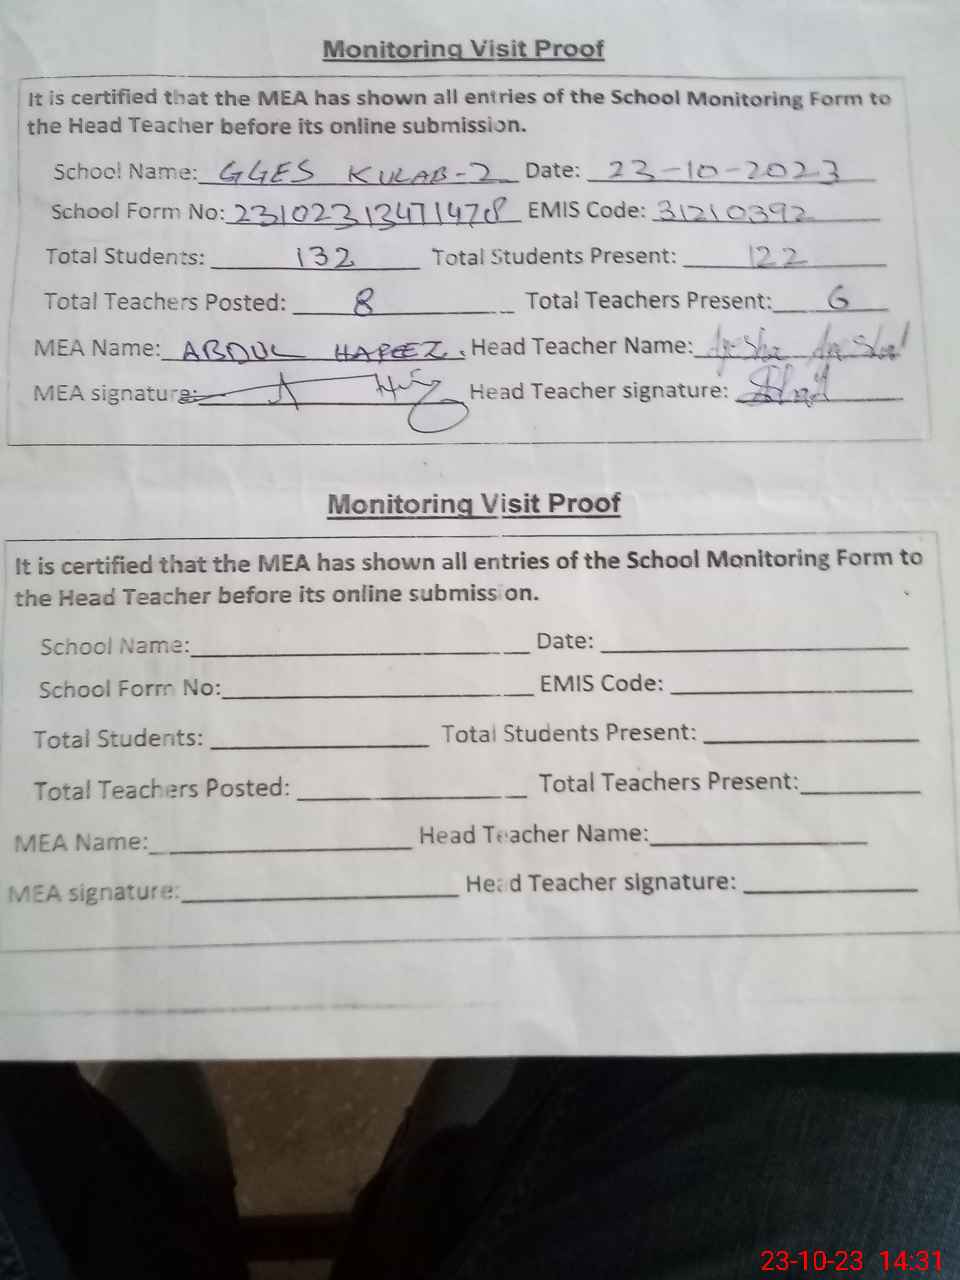 Monitoring Visit Proof
It is certified that the MEA has shown all entries of the School Monitoring Form to
the Head Teacher before its online submission.
School Name: GGES KULAB-2 Date: 23-10-2023
School Form No: 23102313471478 EMIS Code: 31210392
Total Students: 132 Total Students Present: 122
Total Teachers Posted: 8 Total Teachers Present: 6
MEA Name: ABDUL HAFEEZ. Head Teacher Name: Ayesha
MEA signature: Head Teacher signature:
Monitoring Visit Proof
It is certified that the MEA has shown all entries of the School Monitoring Form to
the Head Teacher before its online submission.
School Name: Date:
School Form No: EMIS Code:
Total Students: Total Students Present:
Total Teachers Posted: Total Teachers Present:
MEA Name: Head Teacher Name:
MEA signature: Head Teacher signature:
23-10-23 14:31